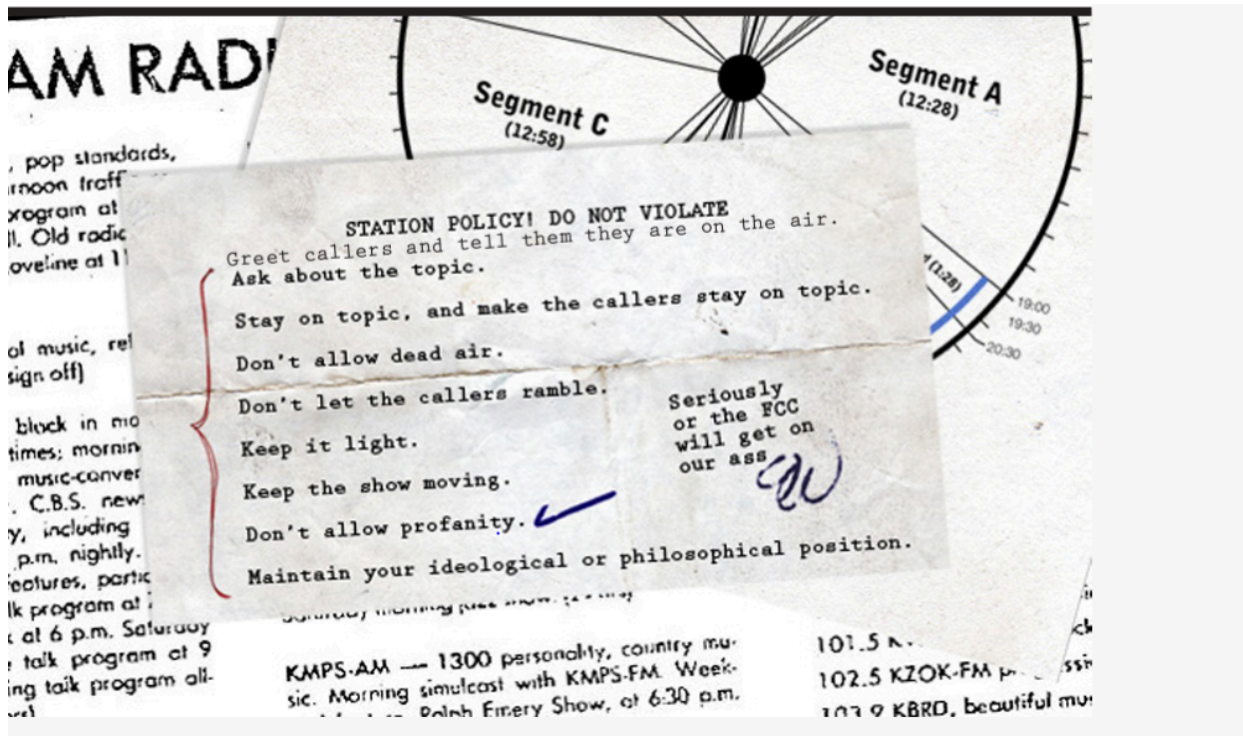 AM RADI
, pop standards,
program at
ll. Old radio
oveline at 11
of music, rel
sign off)
block in mo
times; mornin
music-conver
. C.B.S. new
y, including
p.m. nightly.
eatures, partic
lk program at
at 6 p.m. Saturday
talk program at 9
ing talk program all-
Segment C
(12:58)
Segment A
(12:28)
(1:28)
19:00
19:30
20:30
STATION POLICY! DO NOT VIOLATE
Greet callers and tell them they are on the air.
Ask about the topic.
Stay on topic, and make the callers stay on topic.
Don't allow dead air.
Don't let the callers ramble.
Keep it light.
Keep the show moving.
Don't allow profanity.
Maintain your ideological or philosophical position.
Seriously
or the FCC
will get on
our ass
KMPS-AM — 1300 personality, country mu-
sic. Morning simulcast with KMPS-FM. Week-
Ralph Emery Show, at 6:30 p.m.
101.5 K
102.5 KZOK-FM
103.9 KBRD, beautiful mus